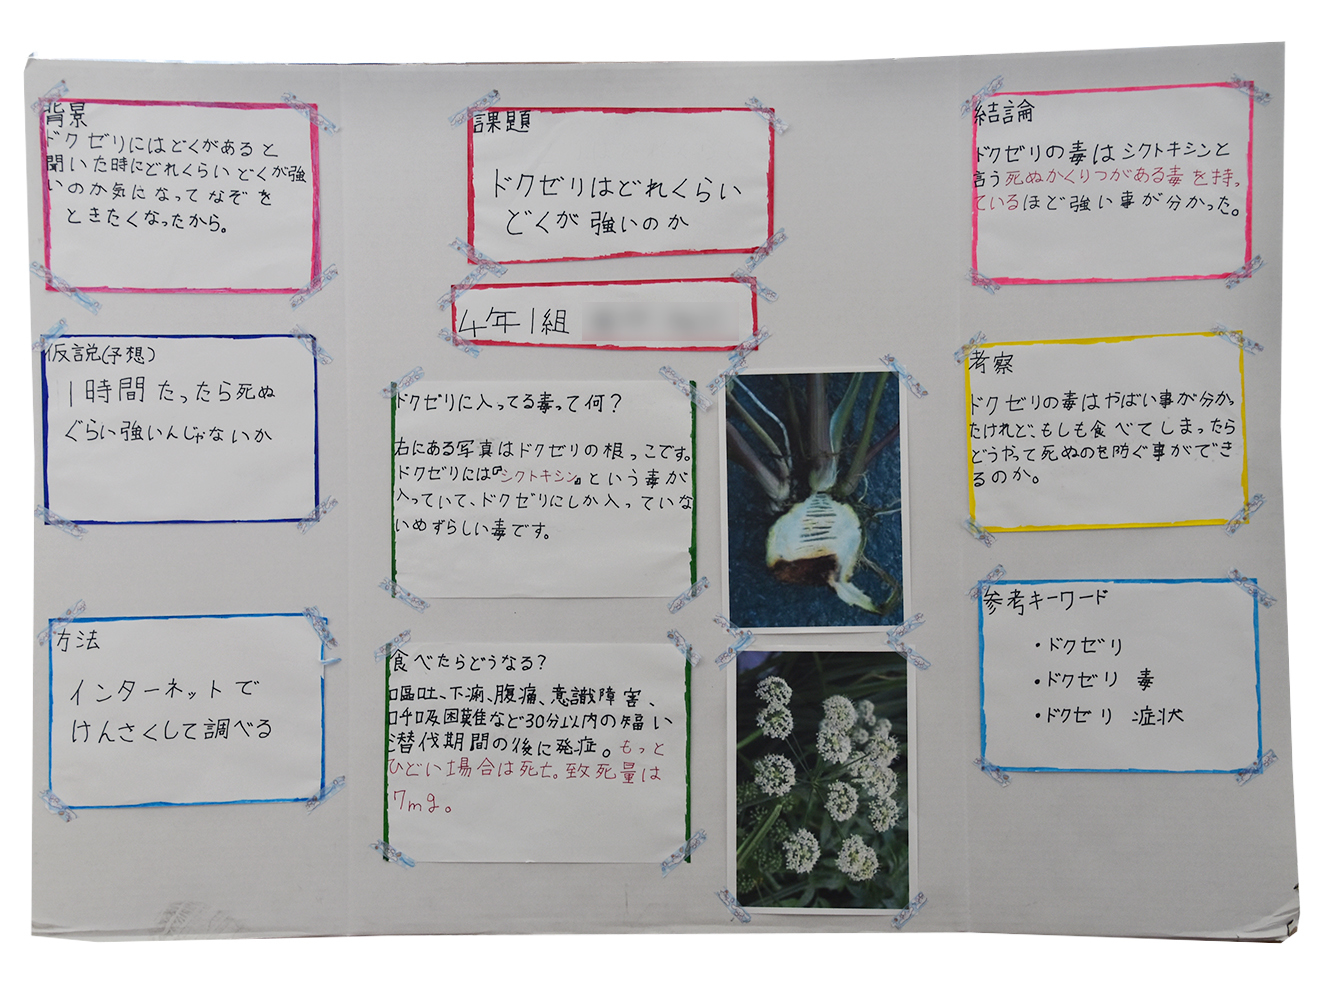 背景
ドクゼリにはどくがあると
聞いた時にどれくらいどくが強
いのか気になってなぞを
ときたくなったから。
仮説(予想)
1時間たったら死ぬ
ぐらい強いんじゃないか
方法
インターネットで
けんさくして調べる
課題
ドクゼリはどれくらい
どくが強いのか
4年1組
ドクゼリに入ってる毒って何?
右にある写真はドクゼリの根っこです。
ドクゼリには『シクトキシン』という毒が
入っていて、ドクゼリにしか入っていな
いめずらしい毒です。
食べたらどうなる?
嘔吐、下痢、腹痛、意識障害、
呼吸困難など30分以内の短い
潜代期間の後に発症。もっと
ひどい場合は死亡。致死量は
7mg。
結論
ドクゼリの毒はシクトキシンと
言う死ぬかくりつがある毒を持っ
ているほど強い事が分かった。
考察
ドクゼリの毒はやばい事が分かっ
たけれど、もしも食べてしまったら
どうやって死ぬのを防ぐ事ができ
るのか。
参考キーワード
・ドクゼリ
・ドクゼリ 毒
・ドクゼリ 症状